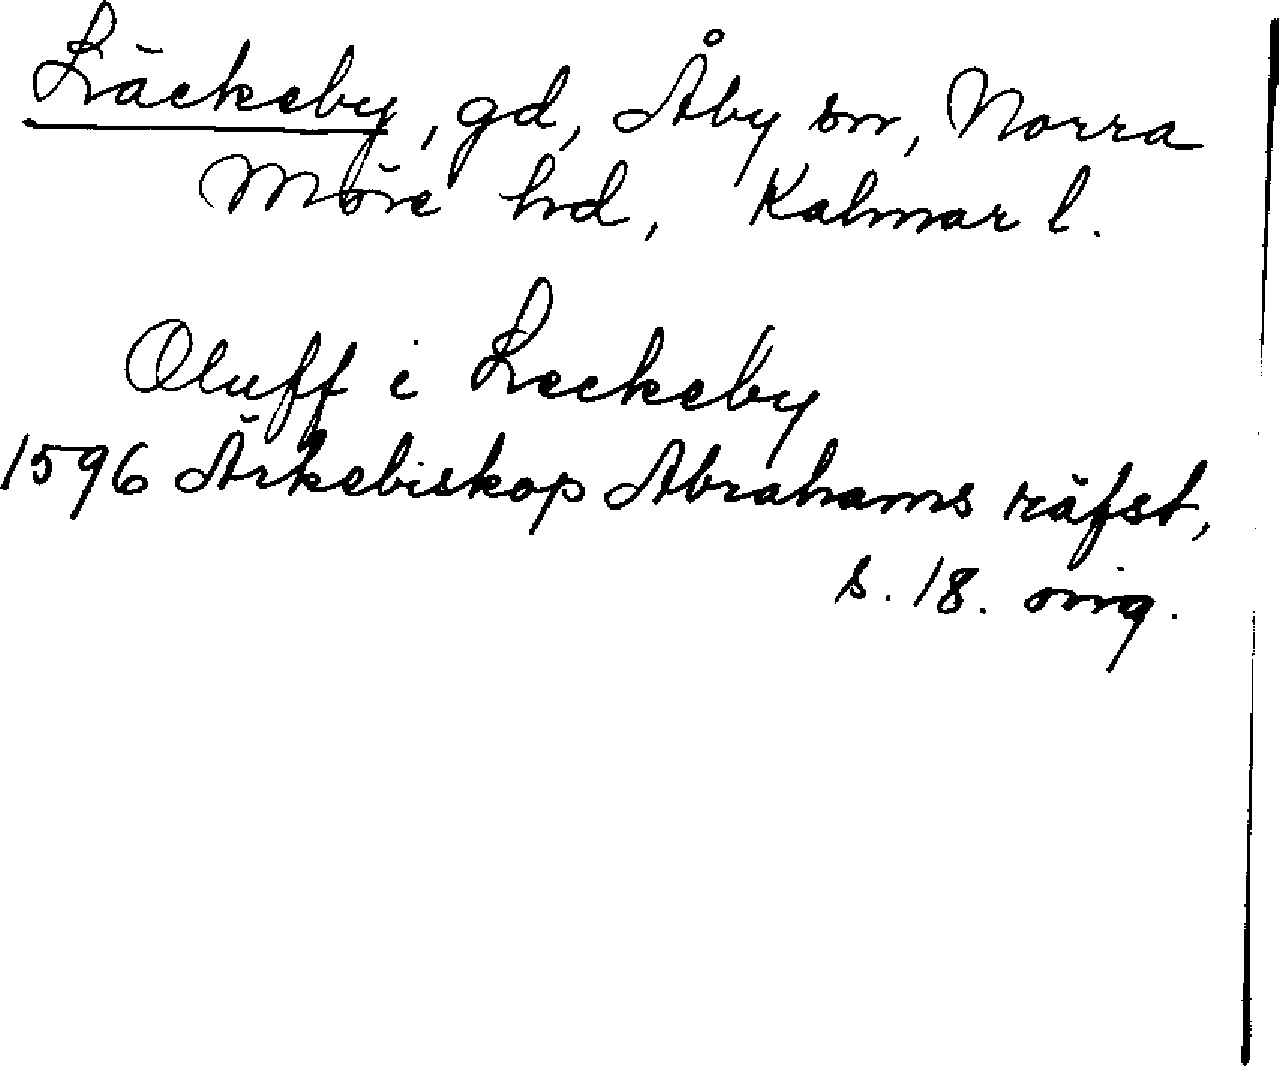 Läckeby, gd, Åby sn, Norra
Möre hd, Kalmar l.
Oluff i Leckeby
1596 Ärkebiskop Abrahams räfst,
s. 18. orig.